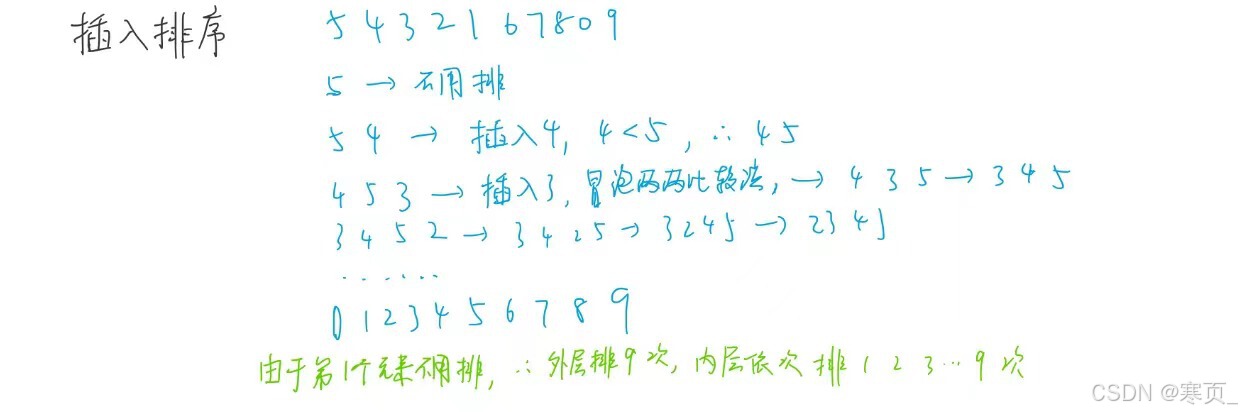 插入排序
5 4 3 2 1 6 7 8 0 9
5 → 不用排
5 4 → 插入4, 4<5, ∴ 4 5
4 5 3 → 插入3, 冒泡两两比较法, → 4 3 5 → 3 4 5
3 4 5 2 → 3 4 2 5 → 3 2 4 5 → 2 3 4 5
......
0 1 2 3 4 5 6 7 8 9
由于第1个元素不用排, ∴ 外层排9次, 内层依次排 1 2 3 … 9 次
CSDN @寒页_